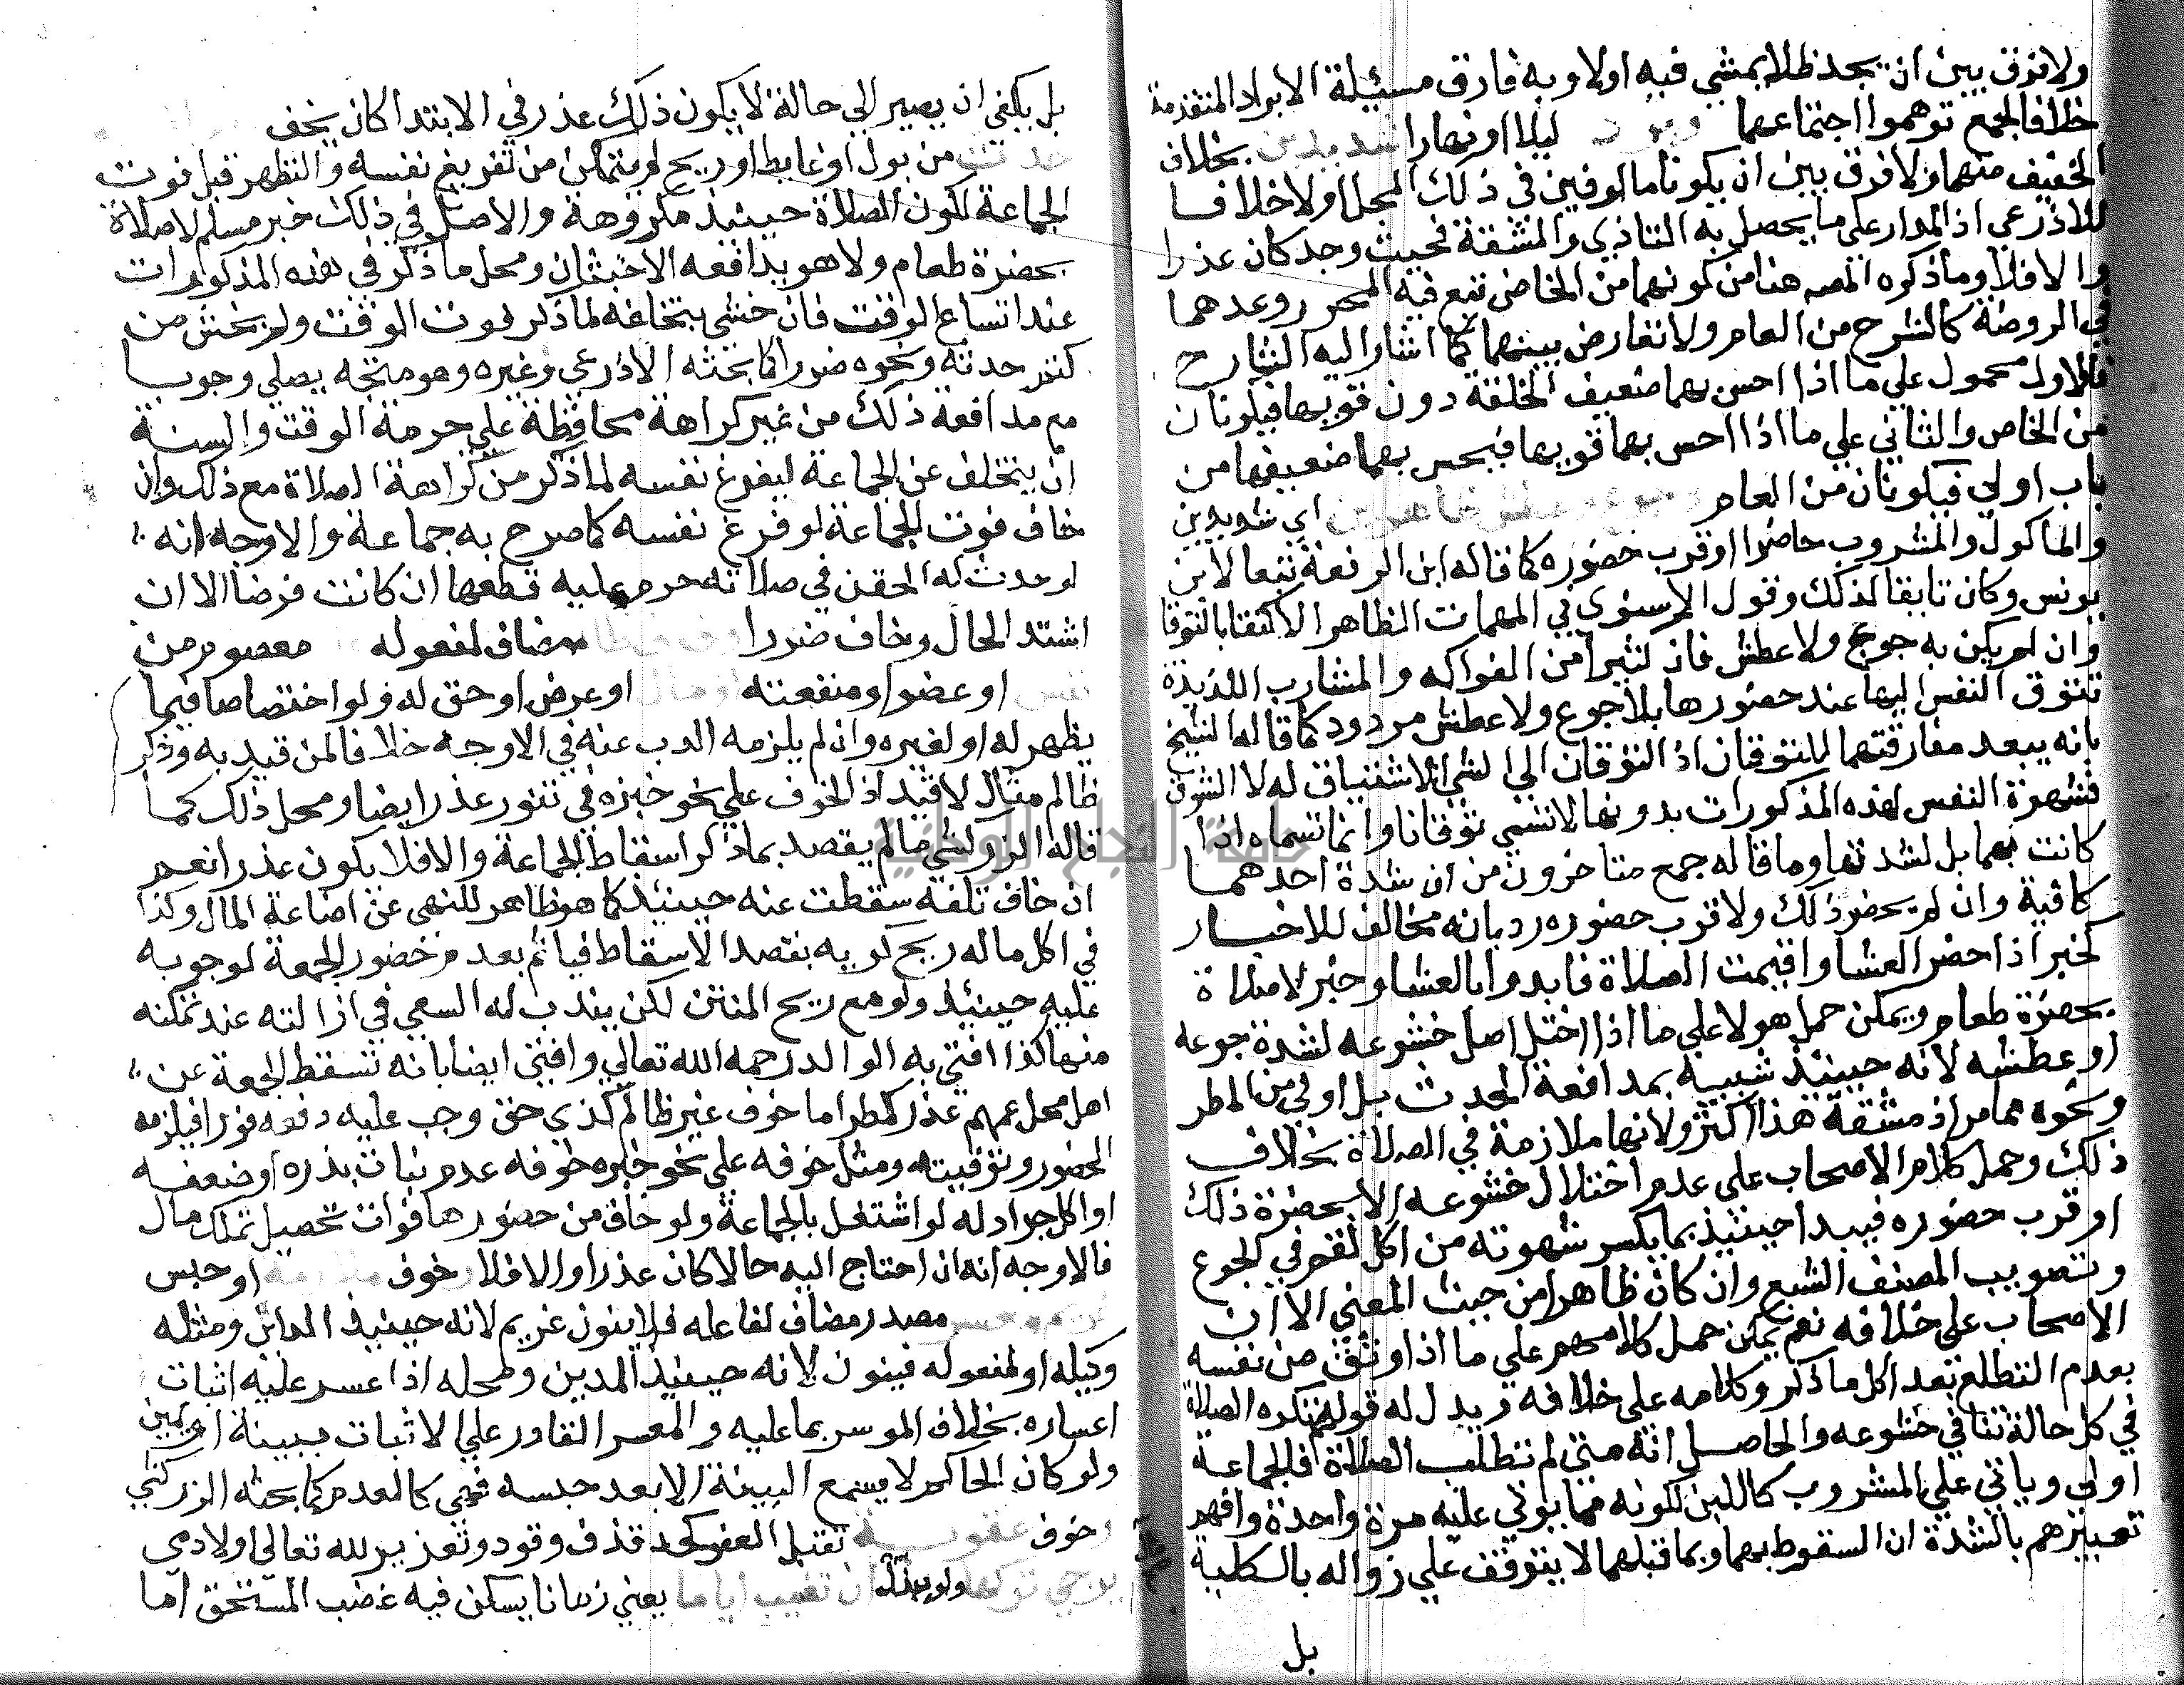 ولا فرق بين ان يجد ظلا يمشي فيه اولا وبه فارق مسئيلة الابراد المتقدمة
خلافا لجمع توهموا اجتماعهما ليلا او نهارا شديدين بخلاف
الخفيف منهما ولا فرق بين ان يكونا مالوفين في ذلك المحل اولا خلافا
للاذرعي اذ المدار على ما يحصل به التاذي والمشقة فحيث وجد كان عذرا
والا فلا وما ذكره المصـ هنا من كونهما من الخاص تبع فيه المحرر وعدهما
في الروضة كالشرح من العام ولا تعارض بينهما كما اشار اليه الشارح
فالاول محمول علي ما اذا احس بهما ضعيف الخلقة دون قويها فيكونان
من الخاص والثاني علي ما اذا احس بهما قويها فيحس بهما ضعيفها من
باب اولي فيكونان من العام اي شديدين
والماكول والمشروب حاضرا او قرب حضوره كما قاله ابن الرفعة تبعا لابن
يونس وكان تايقا لذلك وقول الاسنوي في المهمات الظاهر الاكتفا بالتوقان
وان لم يكن به جوع ولا عطش فان كثيرا من الفواكه والمشارب اللذيذة
تتوق النفس اليها عند حضورها بلا جوع ولا عطش مردود كما قاله الشيخ
بانه يبعد مفارقتهما للتوقان اذ التوقان الي الشي الاشتياق له لا الشوق
فشهوة النفس لهذه المذكورات بدونهما لا تسمي توقانا وانما تسماه اذا
كانت بهما بل لشدتهما وما قاله جمع متاخرون من ان شدة احدهما
كافية وان لم يحضر ذلك ولا قرب حضوره رد بانه مخالف للاخبار
كخبر اذا حضر العشا واقيمت الصلاة فابدوا بالعشا وخبر لا صلاة
بحضرة طعام ويمكن حمل هولا علي ما اذا اختل اصل خشوعه لشدة جوعه
او عطشه لانه حينيذ شبيه بمدافعة الحدث بل اولي من المطر
ونحوه مما مر اذ مشقة هذا اكثر ولانها ملازمة في الصلاة بخلاف
ذلك وحمل كلام الاصحاب علي عدم اختلال خشوعه الا بحضرة ذلك
او قرب حضوره فيبدا حينيذ بما يكسر شهوته من اكل لقم في الجوع
وتصويب المصنف الشبع وان كان ظاهرا من حيث المعني الا ان
الاصحاب علي خلافه نعم يمكن حمل كلامهم علي ما اذا وثق من نفسه
بعدم التطلع بعد اكل ما ذكر وكلامه علي خلافه ويدل له قولهم تكره الصلاة
في كل حالة تنافي خشوعه والحاصل انه متي لم تطلب الصلاة فالجماعة
اولي وياتي علي المشروب كاللبن لكونه مما يوتي عليه مرة واحدة وافهم
تعبيرهم بالشدة ان السقوط بهما وبما قبلهما لا يتوقف علي زواله بالكلية
بل
بل يكفي ان يصير الي حالة لا يكون ذلك عذر في الابتدا كان يخف
من بول او غايط او ريح لم يتمكن من تفريغ نفسه والتطهر قبل فوت
الجماعة لكون الصلاة حينيذ مكروهة والاصل في ذلك خبر مسلم لا صلاة
بحضرة طعام ولا هو يدافعه الاخبثان ومحل ما ذكر في هذه المذكورات
عند اتساع الوقت فان خشي بتخلفه لما ذكر فوت الوقت ولم يخش من
كتم حدثه ونحوه ضررا كما بحثه الاذرعي وغيره وهو متجه يصلي وجوبا
مع مدافعة ذلك من غير كراهة محافظة علي حرمة الوقت والسنة
ان يتخلف عن الجماعة ليفرغ نفسه لما ذكر من كراهة الصلاة مع ذلك وان
خاف فوت الجماعة لو فرغ نفسه كما صرح به جماعة والاوجه انه
لو حدث له الحقن في صلاته حرم عليه قطعها ان كانت فرضا الا ان
اشتد الحال وخاف ضررا مضاف لمفعوله معصوم من
نفس او عضو او منفعته او مال او عرض او حق له ولو اختصاصا فيما
يظهر له او لغيره وان لم يلزمه الدب عنه في الاوجه خلافا لمن قيد به وذكر
ظالم مثال لا قيد اذ الخوف علي نحو خبزه في تنور عذر ايضا ومحل ذلك كما
قاله الزركشي ما لم يقصد بما ذكر اسقاط الجماعة والا فلا يكون عذرا نعم
ان خاف تلفه سقطت عنه حينيذ كما هو ظاهر للنهي عن اضاعة المال وكذا
في اكل ما له ريح كريه بقصد الاسقاط فياثم بعدم حضور الجمعة لوجوبه
عليه حينيذ ولو مع ريح المنتن لكن يندب له السعي في ازالته عند تمكنه
منها كذا افتي به الوالد رحمه الله تعالي وافتي ايضا بانه تسقط الجمعة عن
اهل محل عمهم عذر كمطر اما خوف غير ظالم كذي حق وجب عليه دفعه فورا فيلزمه
الحضور وتوفيته ومثل خوفه علي نحو خبزه خوفه عدم نبات بذره او ضعفه
او اكل جراد له لو اشتغل بالجماعة ولو خاف من حضورها فوات تحصيل تملك مال
فالاوجه انه ان احتاج اليه حالا كان عذرا والا فلا وخوف ملازمة او حبس
مصدر مضاف لفاعله فلا ينون غريم لانه حينيذ الداين ومثله
وكيله او لمفعوله فينون لانه حينيذ المدين ومحله اذا عسر عليه اثبات
اعساره بخلاف الموسر بما عليه والمعسر القادر علي الاثبات ببينة او يمين
ولو كان الحاكم لا يسمع البينة الا بعد حبسه فهي كالعدم كما بحثه الزركشي
وخوف عقوبة تقبل العفو كحد قذف وقود وتعزير لله تعالي او لادمي
يرجي تركها ولو ببذل ان تغيب اياما يعني زمانا يسكن فيه غضب المستحق اما